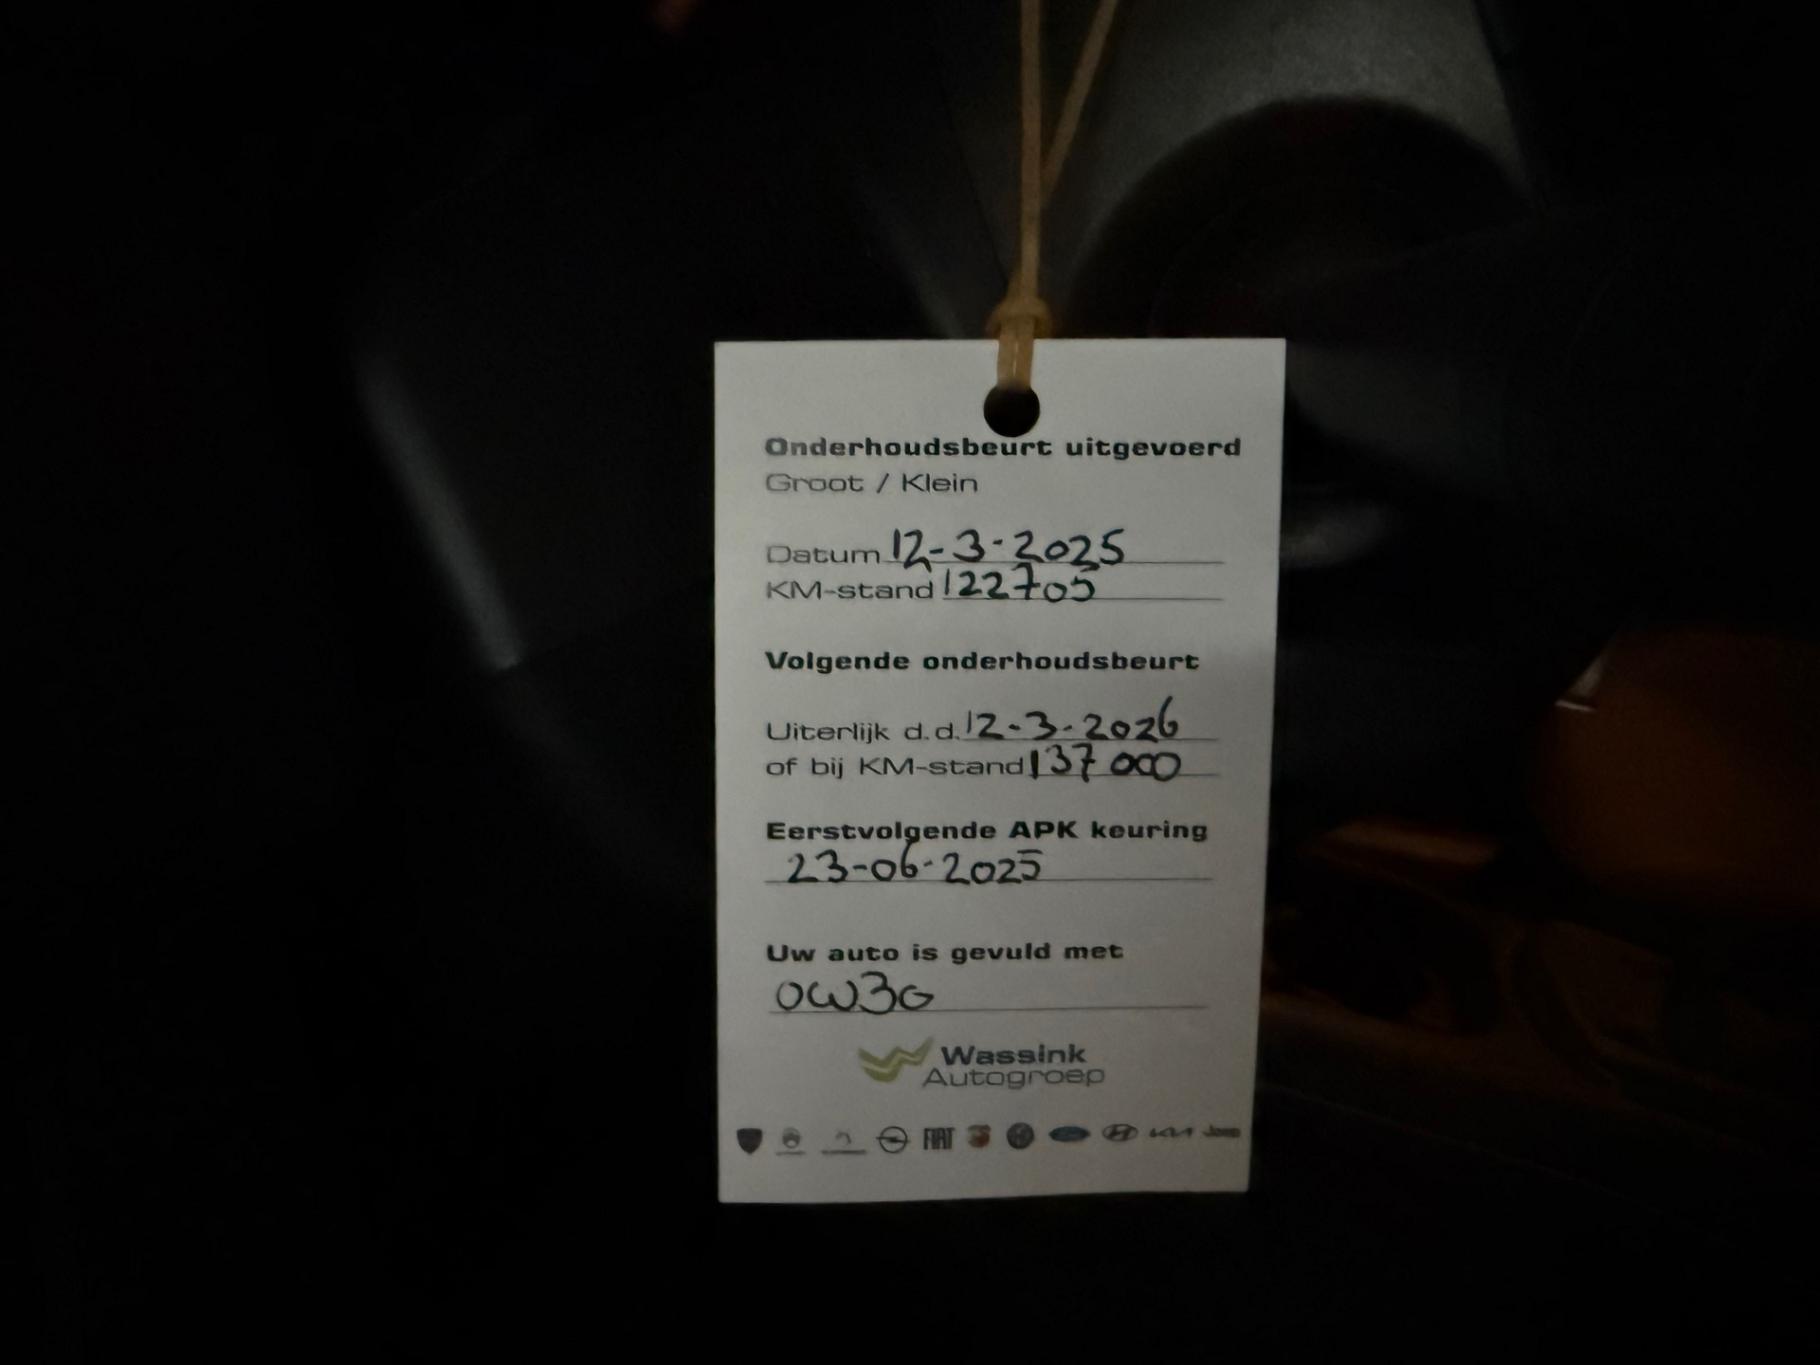 Onderhoudsbeurt uitgevoerd
Groot / Klein
Datum 12-3-2025
KM-stand 122705
Volgende onderhoudsbeurt
Uiterlijk d.d. 12-3-2026
of bij KM-stand 137000
Eerstvolgende APK keuring
23-06-2025
Uw auto is gevuld met
0W30
Wassink
Autogroep
FIAT KIA Jeep